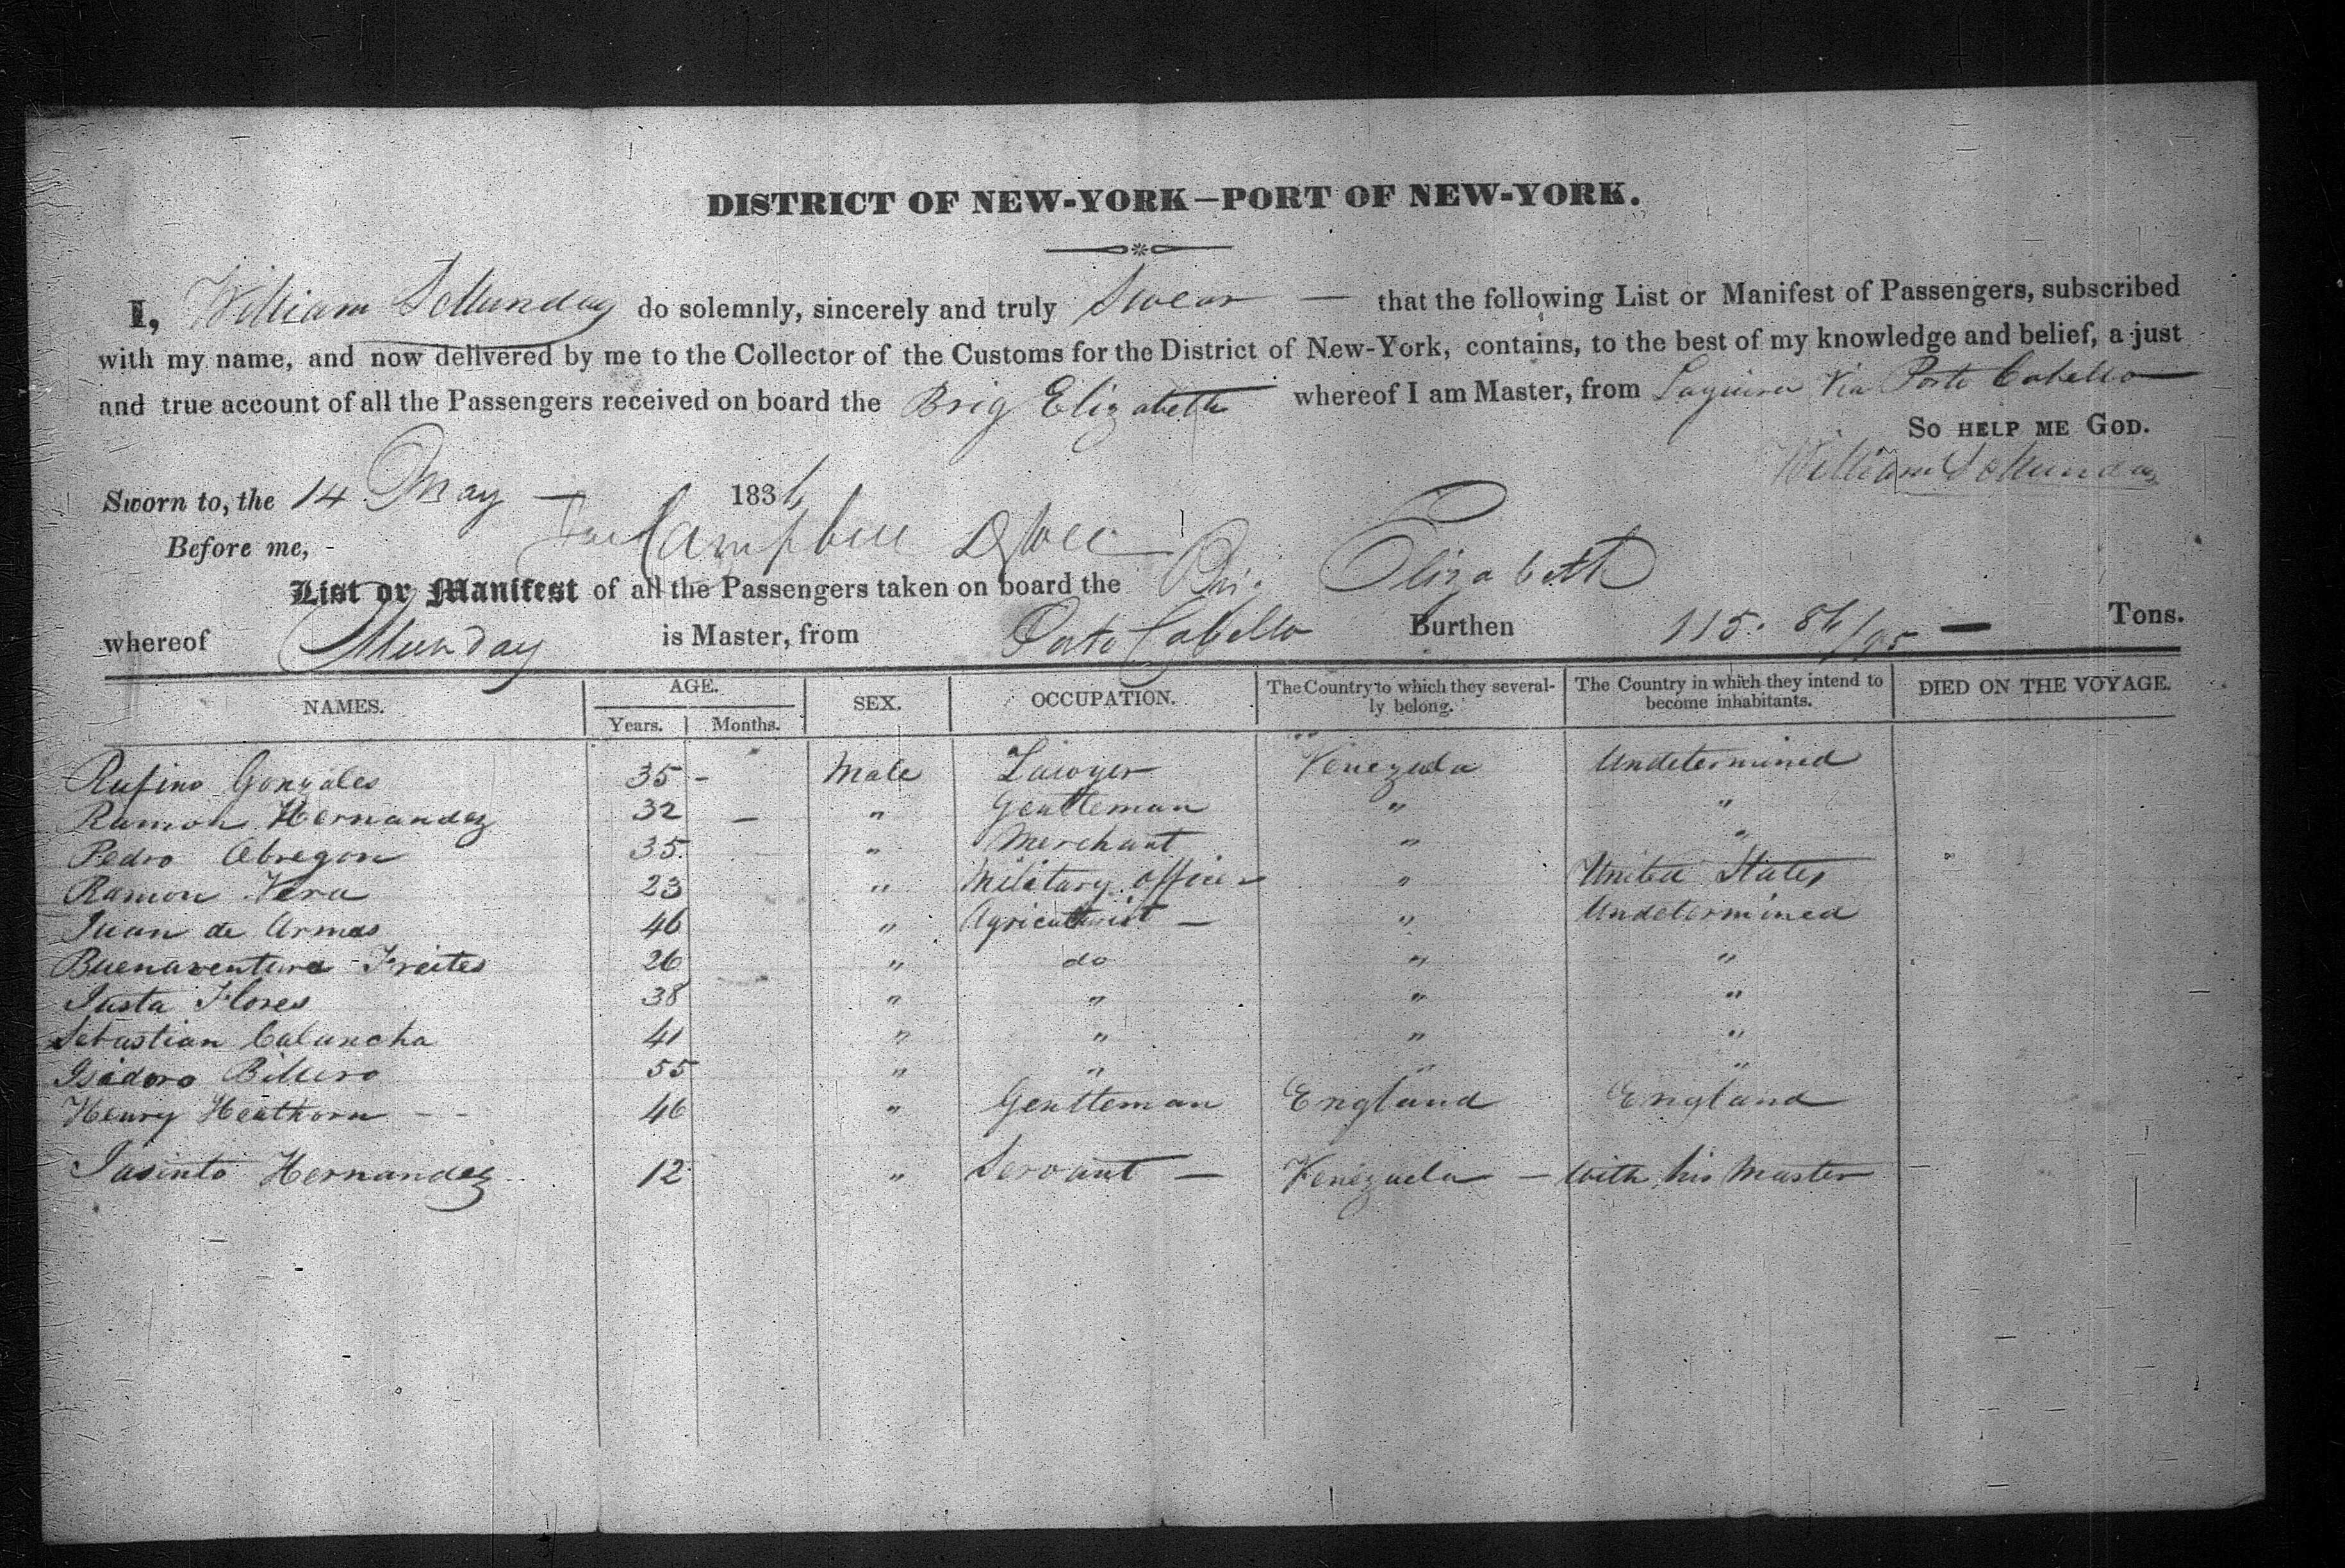 DISTRICT OF NEW-YORK—PORT OF NEW-YORK.
I, William S Munday do solemnly, sincerely and truly Swear — that the following List or Manifest of Passengers, subscribed
with my name, and now delivered by me to the Collector of the Customs for the District of New-York, contains, to the best of my knowledge and belief, a just
and true account of all the Passengers received on board the Brig Elizabeth whereof I am Master, from Laguira Via Porto Cabello
So HELP ME GOD.
William S Munday
Sworn to, the 14 May — 1836
Before me, Campbell
List or Manifest of all the Passengers taken on board the Brig Elizabeth
whereof Munday is Master, from Porto Cabello Burthen 115. 86/95 — Tons.
NAMES. AGE. Years. Months. SEX. OCCUPATION. The Country to which they severally belong. The Country in which they intend to become inhabitants. DIED ON THE VOYAGE.
Rufino Gonzales 35 - Male Lawyer Venezuela Undetermined
Ramon Hernandez 32 — " Gentleman " "
Pedro Obregon 35 " Merchant " "
Ramon Vera 23 " Military officer " United States
Juan de Armas 46 " Agriculturist — " Undetermined
Buenaventura Freites 26 " do " "
Justa Flores 38 " " " "
Sebastian Caluncha 41 " " " "
Isidoro 55 " " " "
Henry Heathorn - - 46 " Gentleman England England
Jasinto Hernandez 12 " Servant — Venezuela — with his Master